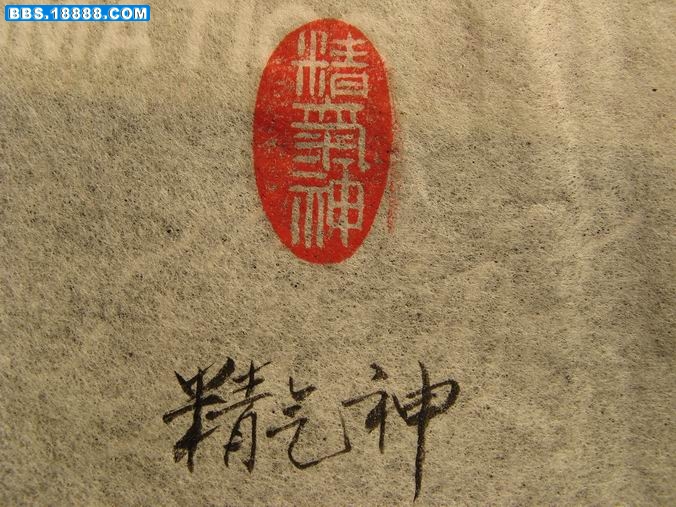 BBS.18888.COM
精氣神
精气神